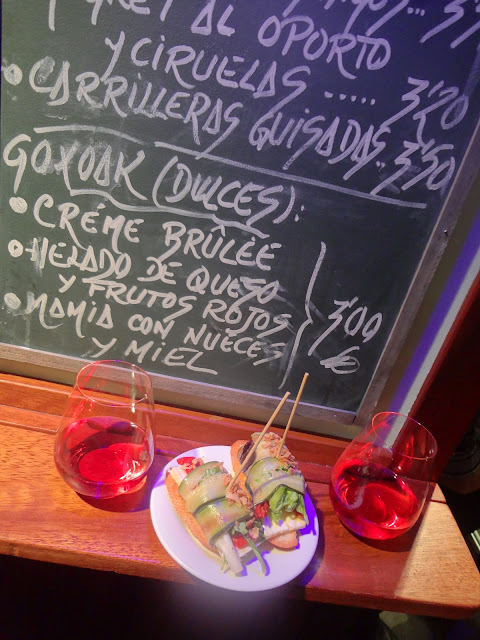 AL OPORTO
Y CIRUELAS ..... 3'20
• CARRILLERAS GUISADAS.. 3'50
GOXOAK (DULCES):
• CRÉME BRÛLÉE
• HELADO DE QUESO
Y FRUTOS ROJOS
• MAMIA CON NUECES
Y MIEL
3'00